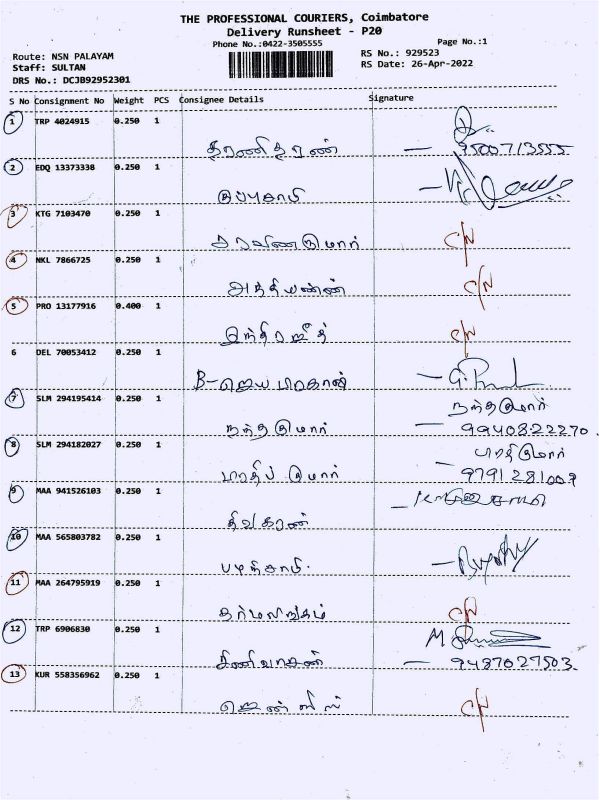 THE PROFESSIONAL COURIERS, Coimbatore
Delivery Runsheet - P20
Phone No.:0422-3505555 Page No.:1
Route: NSN PALAYAM RS No.: 929523
Staff: SULTAN RS Date: 26-Apr-2022
DRS No.: DCJB92952301
S No Consignment No Weight PCS Consignee Details Signature
1 TRP 4024915 0.250 1
தரணிதரண் — 9500713555
2 EDQ 13373338 0.250 1
குப்புசாமி
3 KTG 7103470 0.250 1 C/N
சரவணகுமார்
4 NKL 7866725 0.250 1 C/N
அத்தியண்ணன்
5 PRO 13177916 0.400 1 C/N
இந்திரஜீத்
6 DEL 70053412 0.250 1
B-ஜெயபிரகாஷ்
7 SLM 294195414 0.250 1 நந்தகுமார்
நந்தகுமார் — 9940822270.
8 SLM 294182027 0.250 1
பிரதிப் குமார் — 9791281007
9 MAA 941526103 0.250 1
திவகரன்
10 MAA 565803782 0.250 1
பழநிசாமி.
11 MAA 264795919 0.250 1 C/N
தர்மலிங்கம்
12 TRP 6906830 0.250 1
சினிவாசன் — 9487027503.
13 KUR 558356962 0.250 1 C/N